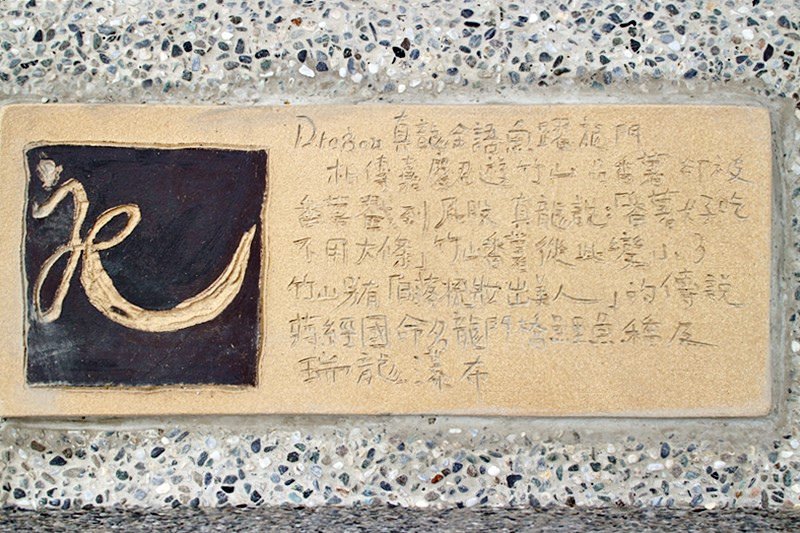 Dragon 真龍金語魚躍龍門
相傳嘉慶君遊竹山 番薯 卻被
番薯 到 真龍說:「番薯好吃
不用大條」竹山番薯從此變小了
竹山另有「日落梳妝出美人」的傳說
蔣經國命名龍門橋 魚 及
瑞龍瀑布